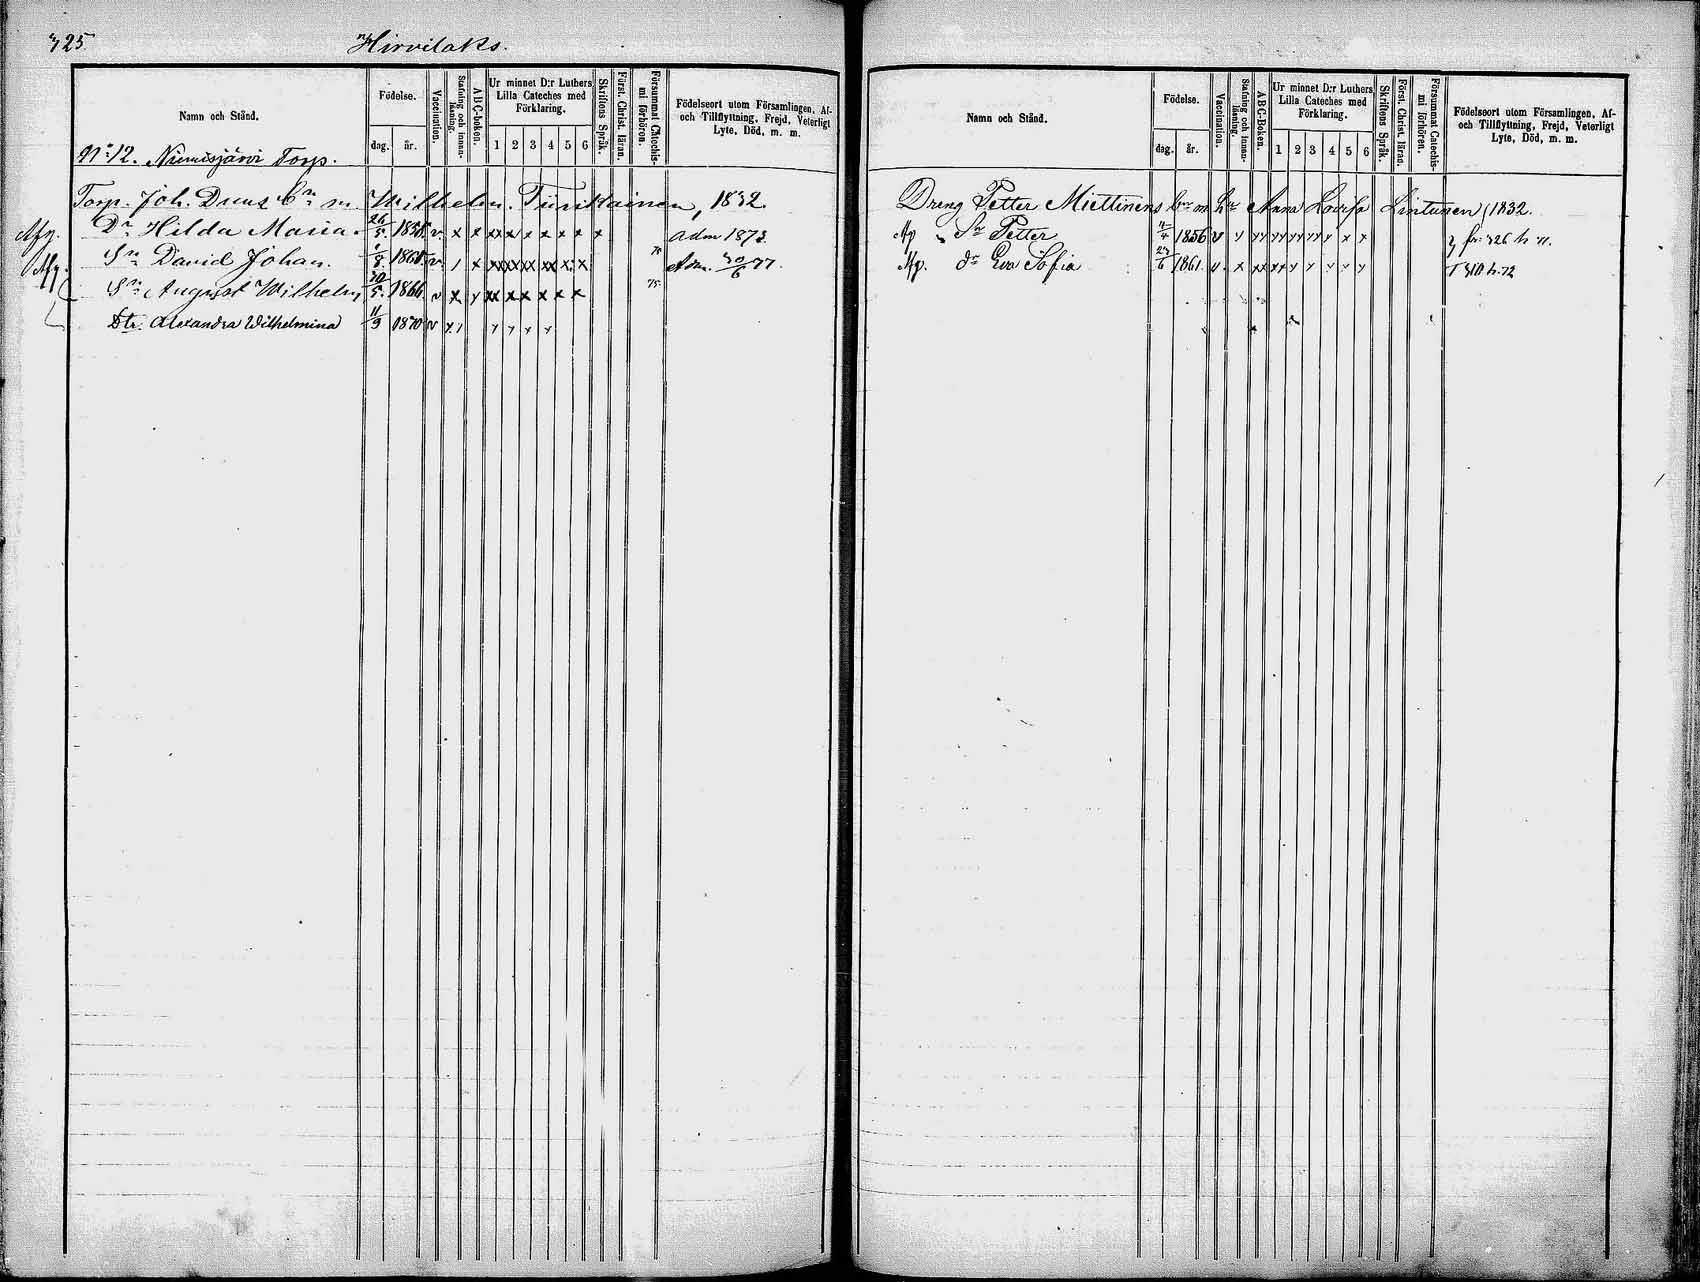 325
Hirvilaks.
Namn och Stånd.
Födelse.
dag. år.
Vaccination.
Stafning och innanläsning.
ABC-boken.
Ur minnet D:r Luthers Lilla Cateches med Förklaring.
1 2 3 4 5 6
Skriftens Språk.
Först. Christ. läran.
Försummat Catechismi förhören.
Födelseort utom Församlingen, Af- och Tillflyttning, Frejd, Veterligt Lyte, Död, m. m.
No 12. Niinisjärvi Torp.
Torp. Joh. Duus bn m. Wilhelm. Tiusktainen, 1832.
Afg. Dr Hilda Maria 26/5 1858 v. x x xx x x x x x x Adm 1873.
Afg. Sn David Johan. 1/8 1861 v. 1 x xx xx xx xx x x 74 Adm. 30/6 77.
Sn August Wilhelm 30/5 1866 v x y xx x x x x x 75.
Dtr. Alexandra Wilhelmina 11/9 1870 v
Namn och Stånd.
Födelse.
dag. år.
Vaccination.
Stafning och innanläsning.
ABC-Boken.
Ur minnet D:r Luthers Lilla Cateches med Förklaring.
1 2 3 4 5 6
Skriftens Språk.
Först. Christ. läran.
Försummat Catechismi förhören.
Födelseort utom Församlingen, Af- och Tillflyttning, Frejd, Veterligt Lyte, Död, m. m.
Dreng Petter Miettinens bn m hu Anna Lovisa Lintunen (1832.
Afg Sn Petter 11/4 1856 v 326 h 71.
Afg. dr Eva Sofia 23/6 1861. v. T 310 h. 72